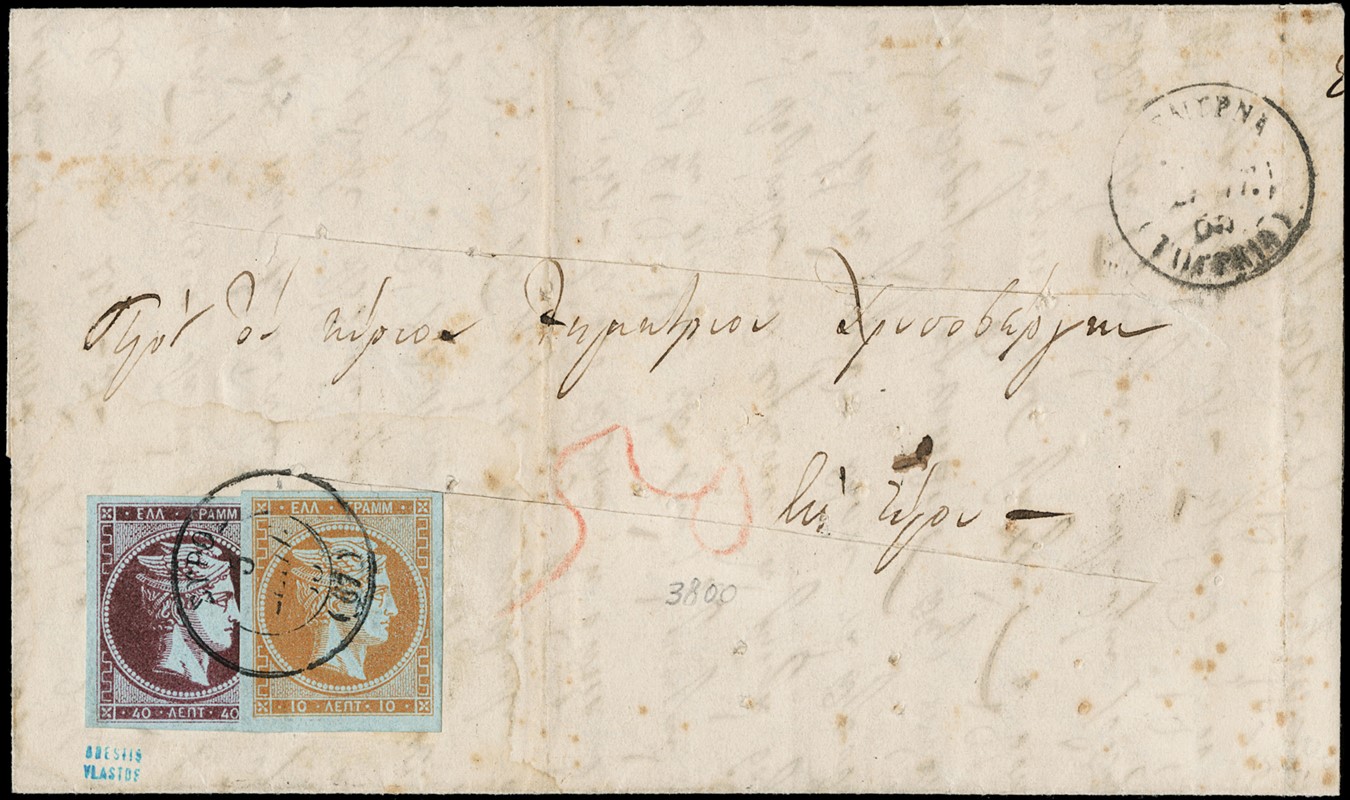 ΣΜΥΡΝΑ
(ΤΟΥΡΚΙΑ)
Πρὸς τὸν κύριον Δημήτριον Χρυσοβέργην
Εἰς Σύρον —
50
3800
ΕΛΛ ΓΡΑΜΜ
40 ΛΕΠΤ 40
ΕΛΛ ΓΡΑΜΜ
10 ΛΕΠΤ 10
(67)
ORESTIS
VLASTOS